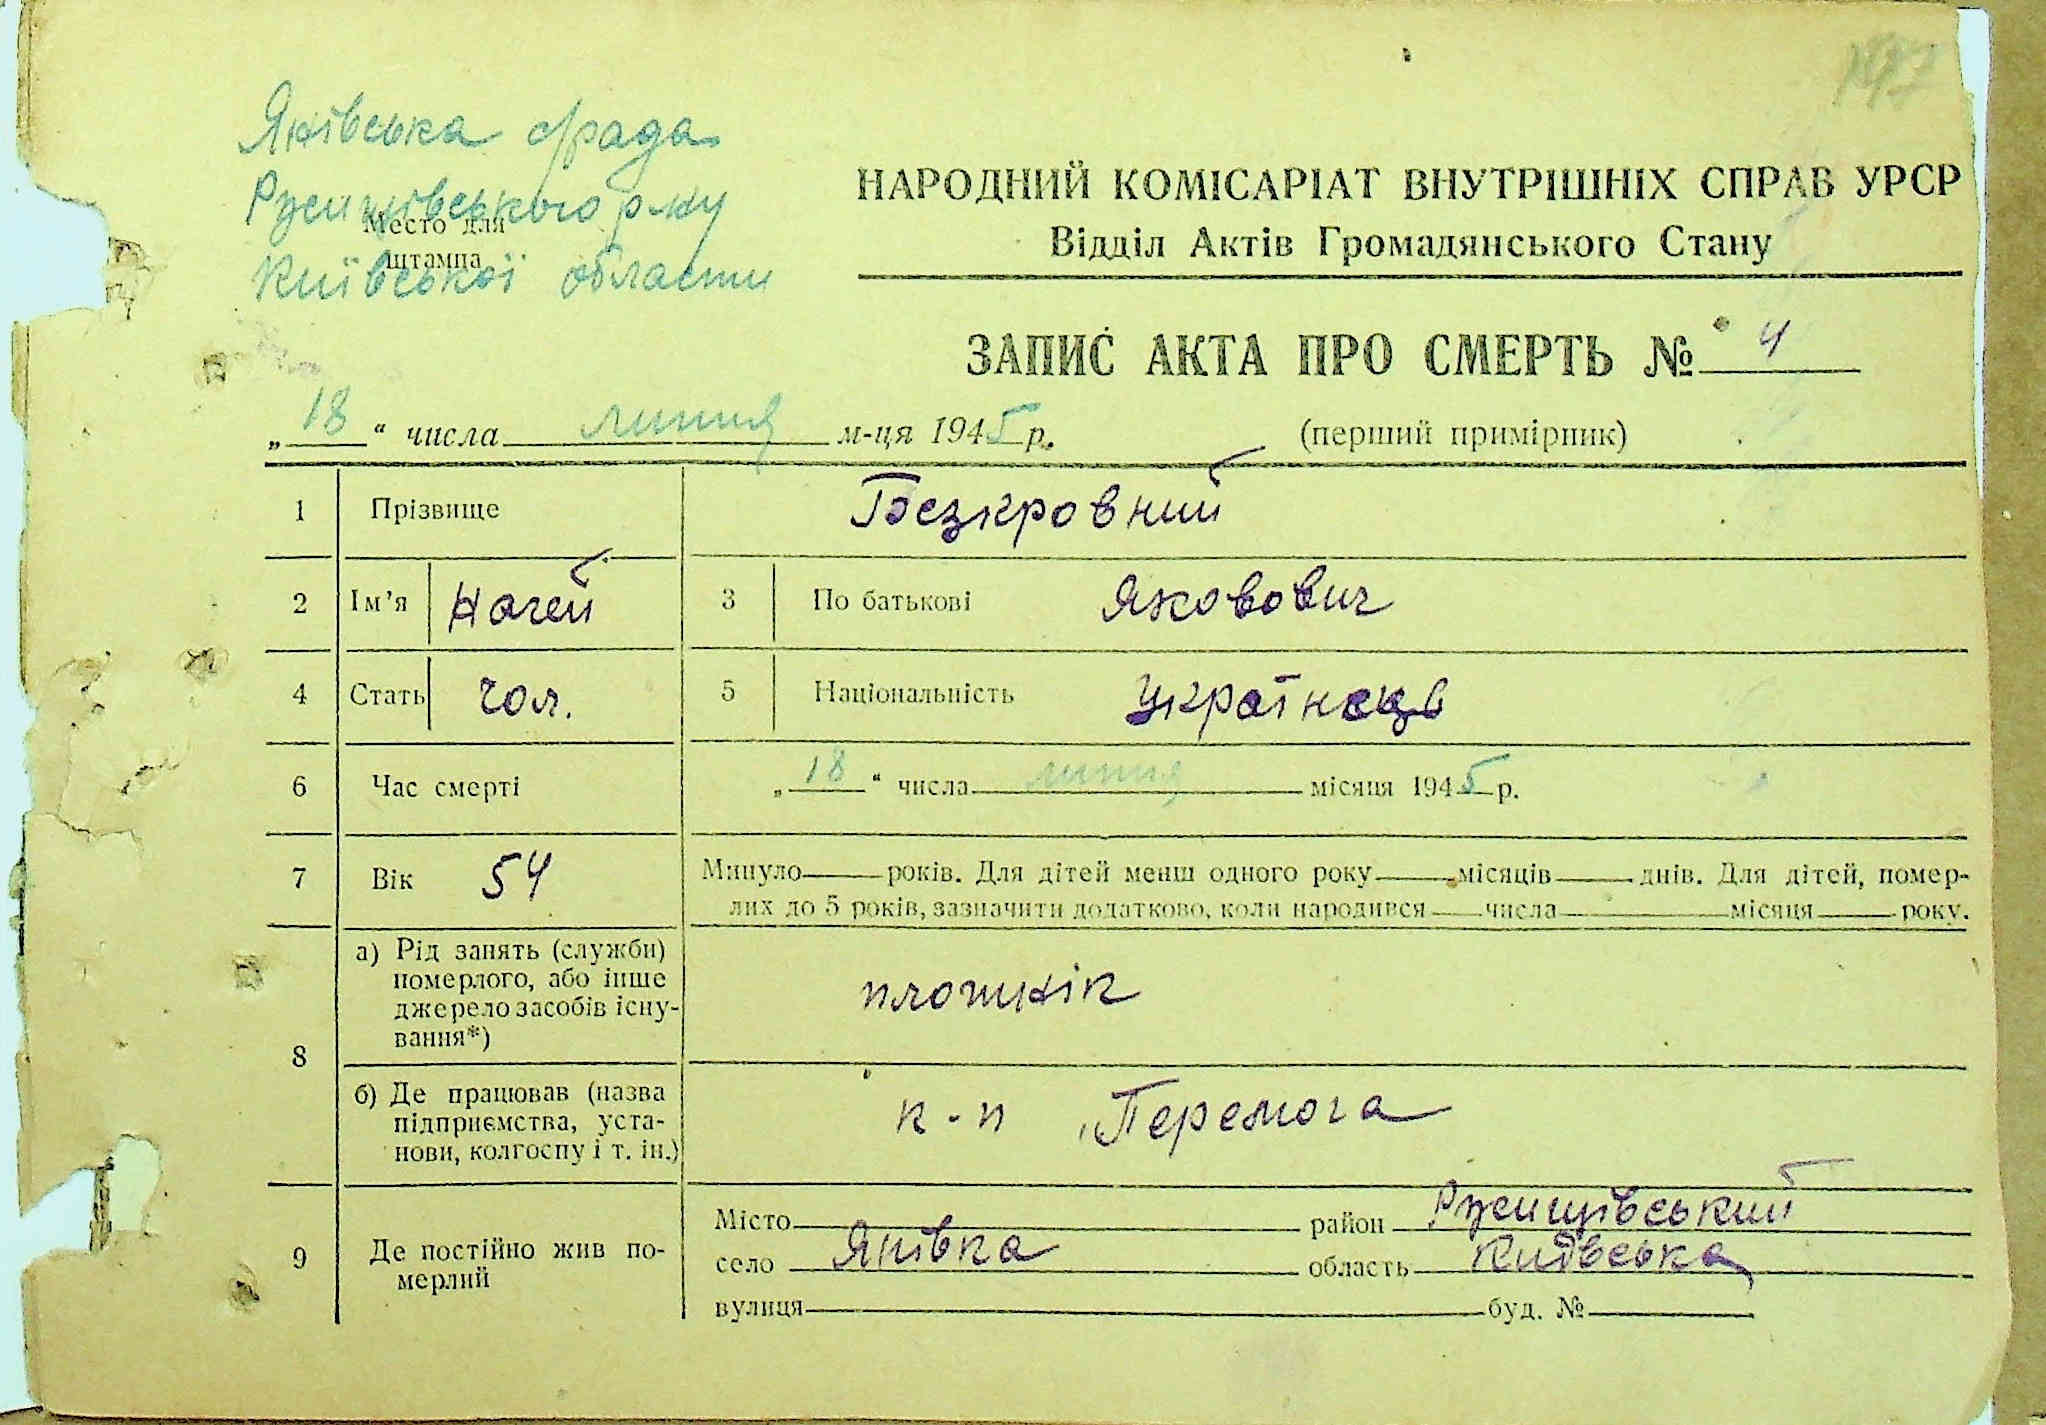 Янівська с/рада
Ржищівського р-ну
Место для
штампа
Київської области
НАРОДНИЙ КОМІСАРІАТ ВНУТРІШНІХ СПРАВ УРСР
Відділ Актів Громадянського Стану
ЗАПИС АКТА ПРО СМЕРТЬ № 4
„ 18 “ числа липня м-ця 1945 р. (перший примірник)
1 Прізвище Безкровний
2 Ім’я 3 По батькові Яковович
4 Стать чол. 5 Національність Українець
6 Час смерті „ 18 “ числа липня місяця 1945 р.
7 Вік 54 Минуло років. Для дітей менш одного року місяців днів. Для дітей, помер-
лих до 5 років, зазначити додатково, коли народився числа місяця року.
8 а) Рід занять (служби)
померлого, або інше
джерело засобів існу-
вання*)
плотнік
б) Де працював (назва
підприємства, уста-
нови, колгоспу і т. ін.)
к-п „Перемога
9 Де постійно жив по-
мерлий
Місто район Ржищівський
село Янівка область Київська
вулиця буд. №